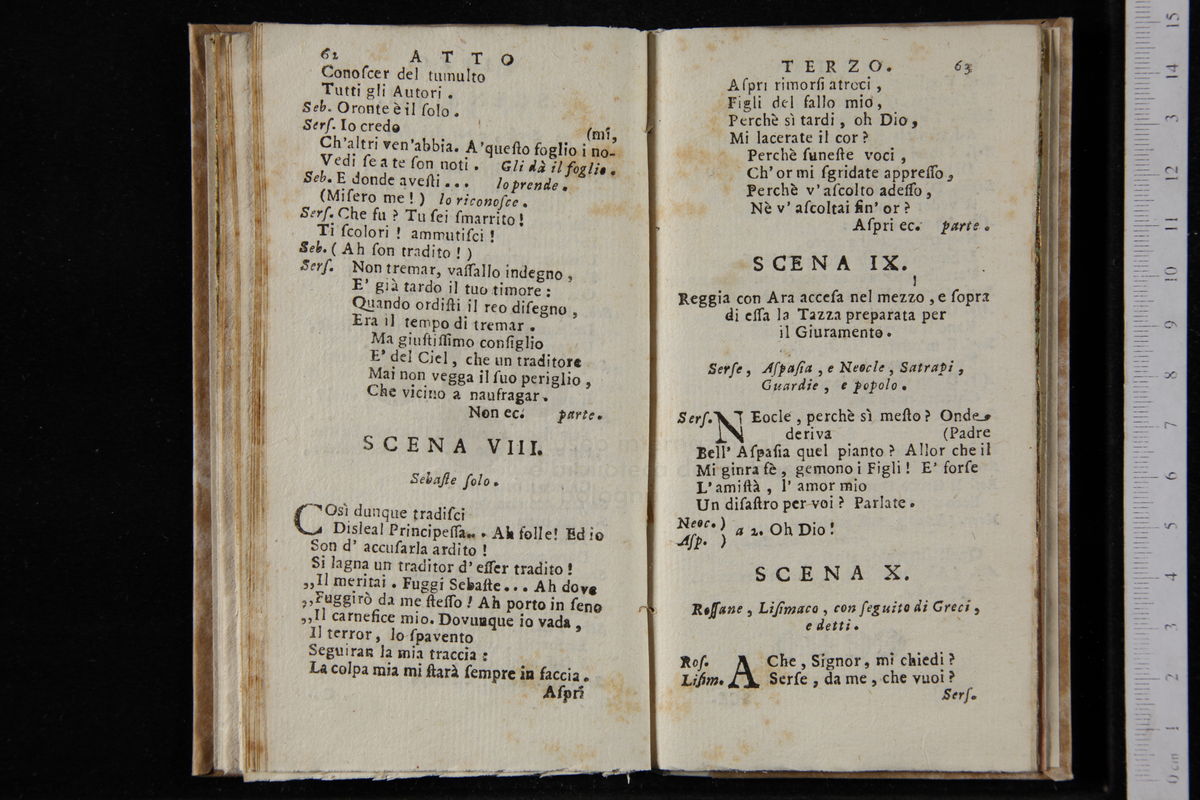 62 ATTO
Conoſcer del tumulto
Tutti gli Autori.
Seb. Oronte è il ſolo.
Serſ. Io credo
(mi,
Ch'altri ven'abbia. A'queſto foglio i no-
Vedi ſe a te ſon noti. Gli dà il foglio.
Seb. E donde aveſti... lo prende.
(Miſero me!) lo riconoſce.
Serſ. Che fu? Tu ſei ſmarrito!
Ti ſcolori! ammutiſci!
Seb. (Ah ſon tradito!)
Serſ. Non tremar, vaſſallo indegno,
E' già tardo il tuo timore:
Quando ordiſti il reo diſegno,
Era il tempo di tremar.
Ma giuſtiſſimo conſiglio
E' del Ciel, che un traditore
Mai non vegga il ſuo periglio,
Che vicino a naufragar.
Non ec. parte.
SCENA VIII.
Sebaſte ſolo.
Così dunque tradiſci
Disleal Principeſſa... Ah folle! Ed io
Son d' accuſarla ardito!
Si lagna un traditor d' eſſer tradito!
„Il meritai. Fuggi Sebaſte... Ah dove
„Fuggirò da me ſteſſo! Ah porto in ſeno
„Il carnefice mio. Dovunque io vada,
Il terror, lo ſpavento
Seguiran la mia traccia:
La colpa mia mi ſtarà ſempre in faccia.
Aſpri
TERZO. 63
Aſpri rimorſi atroci,
Figli del fallo mio,
Perchè sì tardi, oh Dio,
Mi lacerate il cor?
Perchè funeſte voci,
Ch' or mi ſgridate appreſſo,
Perchè v' aſcolto adeſſo,
Nè v' aſcoltai fin' or?
Aſpri ec. parte.
SCENA IX.
Reggia con Ara acceſa nel mezzo, e ſopra
di eſſa la Tazza preparata per
il Giuramento.
Serſe, Aſpaſia, e Neocle, Satrapi,
Guardie, e popolo.
Serſ. NEocle, perchè sì meſto? Onde
deriva (Padre
Bell' Aſpaſia quel pianto? Allor che il
Mi ginra fè, gemono i Figli! E' forſe
L' amiſtà, l' amor mio
Un diſaſtro per voi? Parlate.
Neoc. )
Aſp. ) a 2. Oh Dio!
SCENA X.
Roſſane, Liſimaco, con ſeguito di Greci,
e detti.
Roſ. A Che, Signor, mi chiedi?
Liſim. Serſe, da me, che vuoi?
Serſ.